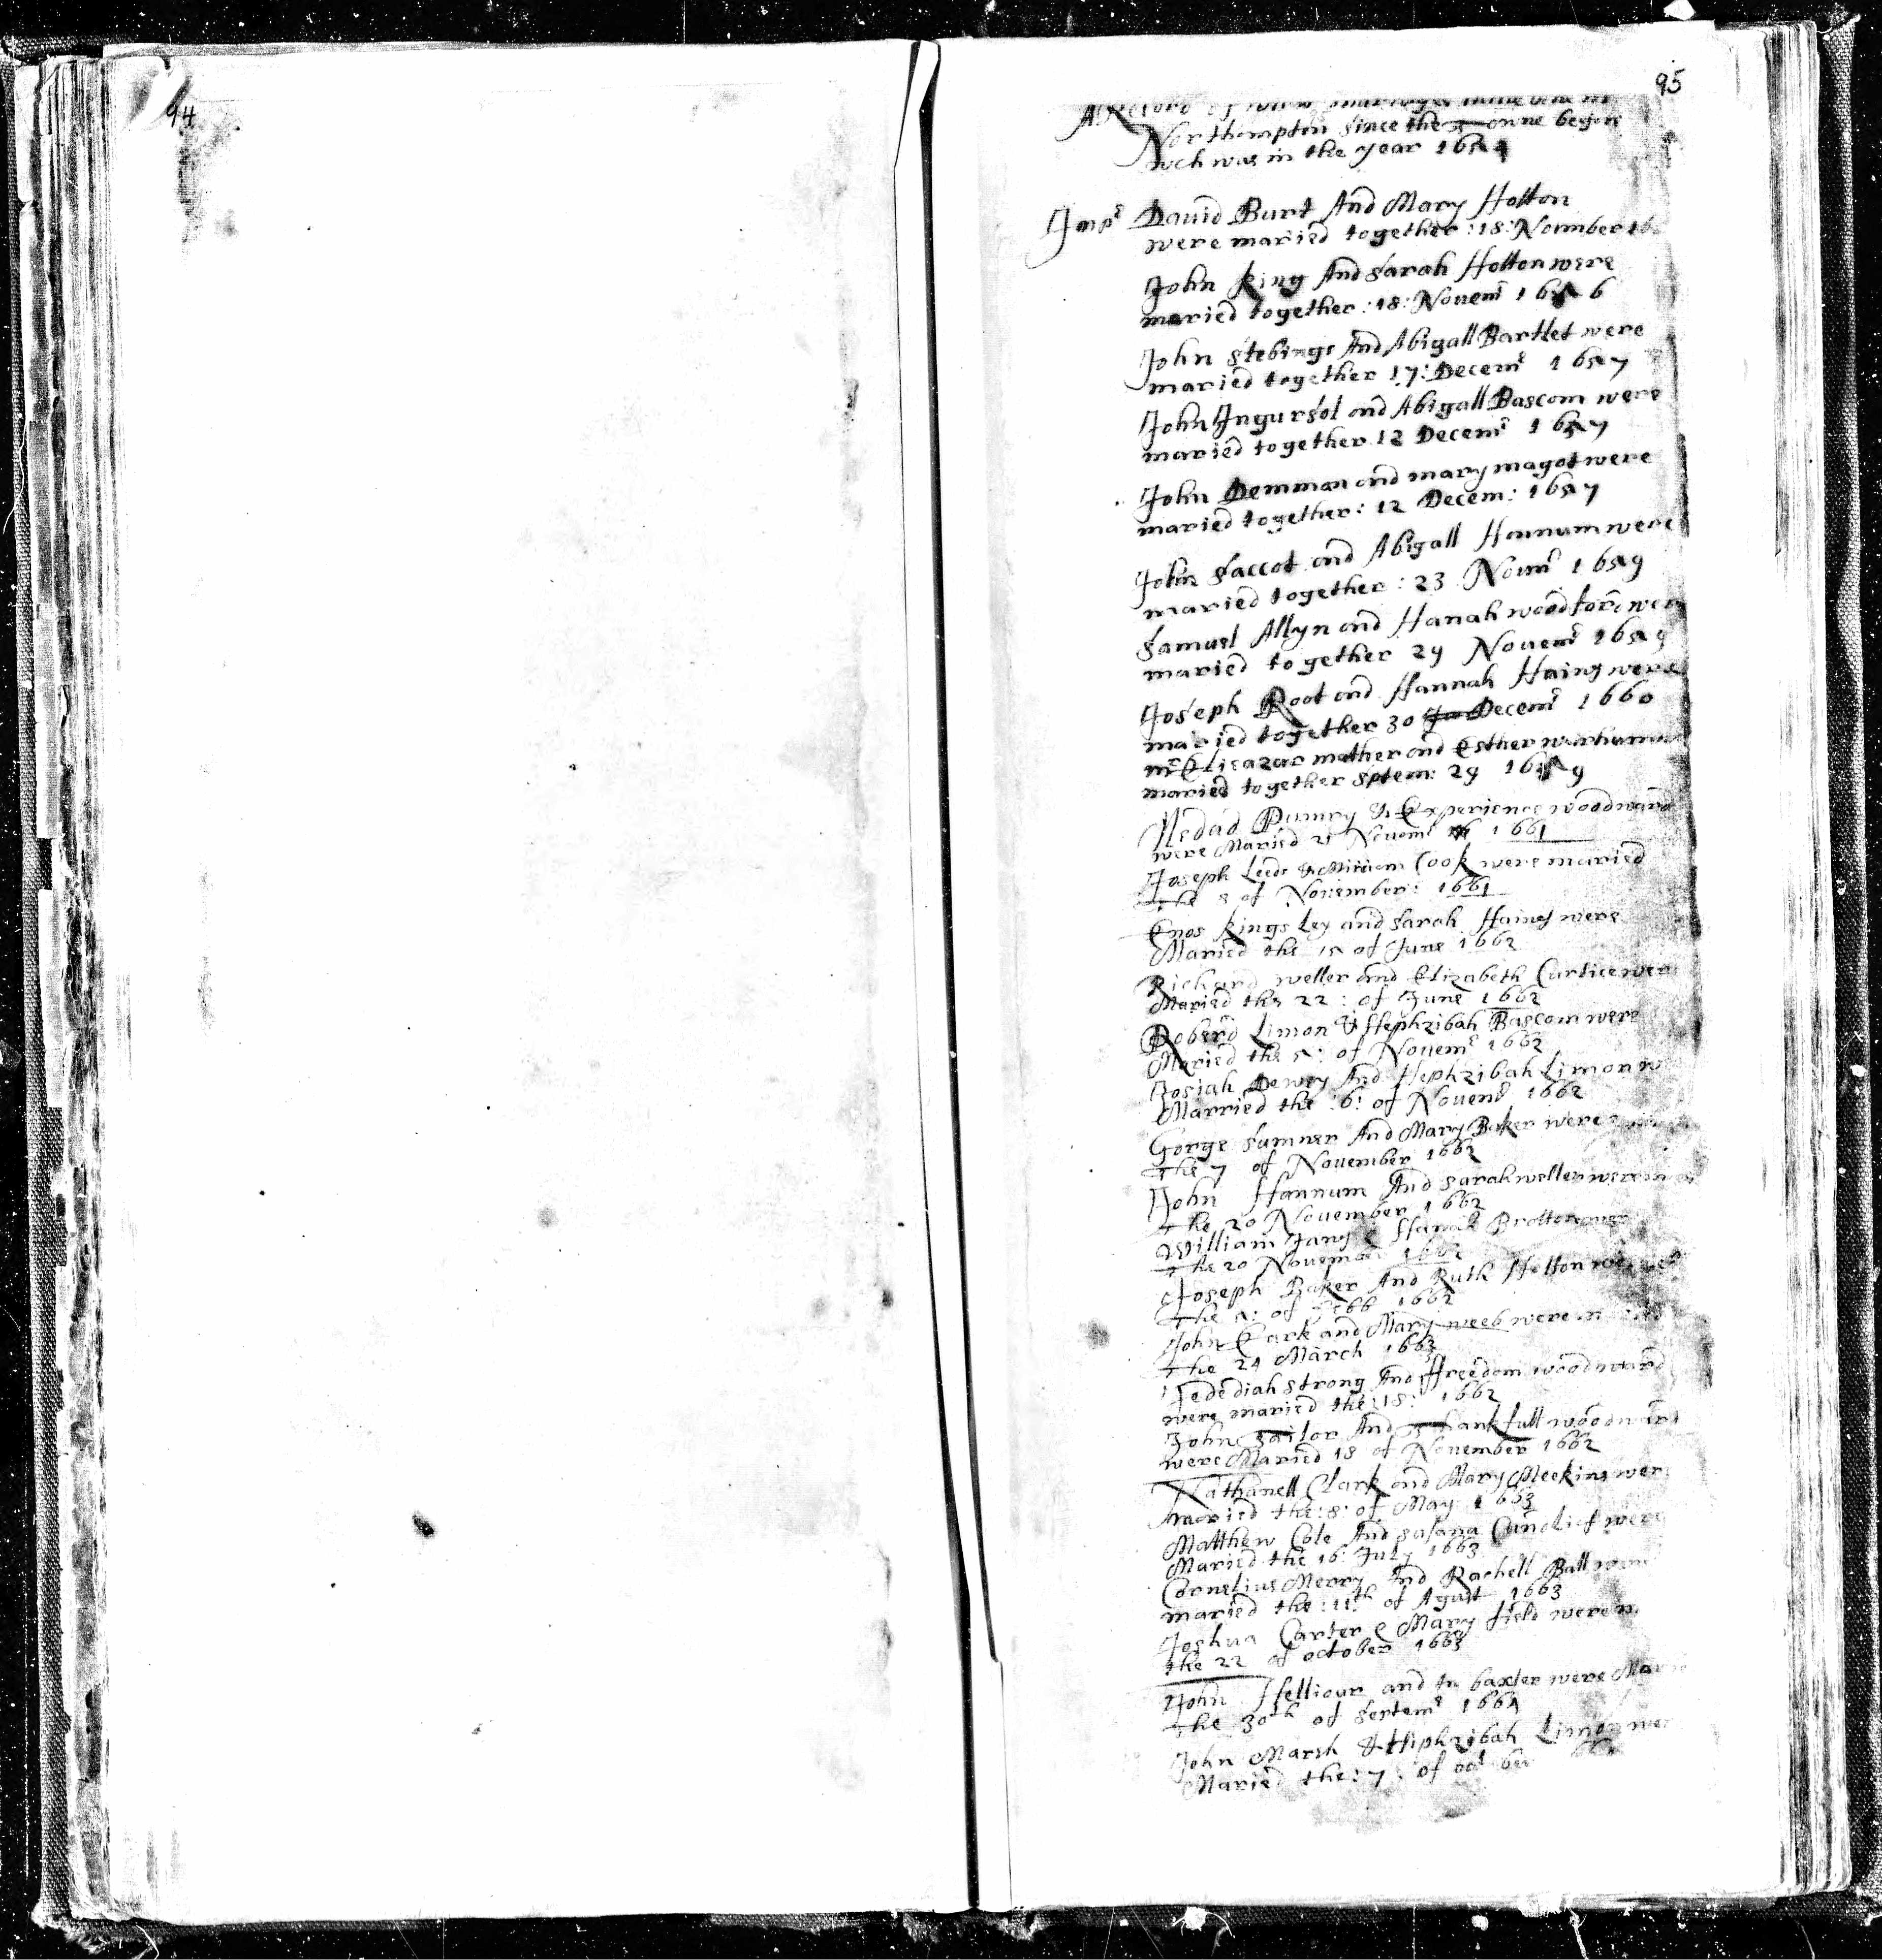 94
95
A Record of
Northampton Since the Towne began
wch was in the year 1654
Imp^r David Burt And Mary Holton
were maried together : 18 : Nouimber 16
John King And Sarah Holton were
maried together : 18 : Nouem^r 1656
John Stebings And Abigall Bartlet were
maried together 17 : Decem^r 1657
John Ingursol and Abigall Bascom were
maried together 12 Decem^r 1657
John Demman and mary magot were
maried together : 12 Decem : 1657
John Saccot and Abigall Hannum were
maried together : 23 Noum^r 1659
Samuel Allyn and Hanah woodford wer
maried together 29 Nouem^r 1659
Joseph Root and Hannah Hains were
maried together 30 Decem^r 1660
m^r Elieazar mather and Esther
maried together Sptem : 29 1659
Medad Pumry & Experience woodward
were Maried 21 Nouem^r 1661
Joseph Leeds & Miriam Cook were maried
the 8 of Nouember : 1661
Enos Kings Ley and Sarah Hains were
Maried the 15 of June 1662
Richard weller and Elizabeth Curtice wer
Maried the 22 : of June 1662
Roberd Limon & Hephzibah Bascom were
Maried the 5 : of Nouem^r 1662
Josiah Dewey And Hephzibah Limon w
Married the : 6 : of Nouem^r 1662
Gorge Sumner And Mary Baker were
the 7 of Nouember 1662
John Hannum And Sarah weller were m
the 20 Nouember 1662
William Janes & Hanah Bratton wer
the 20 Nouember 1662
Joseph Baker And Ruth Holton were
the 5 : of Febb 1662
John Clark and Mary weeb were m
the 24 March 1663
Jedediah Strong And ffreedom woodward
were maried the : 18 : 1662
John Tailor And Thankfull woodward
were Maried 18 of Nouember 1662
Nathanell Clark and Mary Meekins wer
Maried the : 8 : of May 1663
Matthew Cole And Susana Cunclief were
Maried the 16 : July 1663
Cornelius Merry And Rachell Ball were
maried the : 11th of Agust 1663
Joshua Carter & Mary field were m
the 22 of october 1663
John Hilliour and An baxter were Mari
the 30th of Septem^r 1664
John Marsh & Hiphzibah Limon wer
Maried the : 7 : of